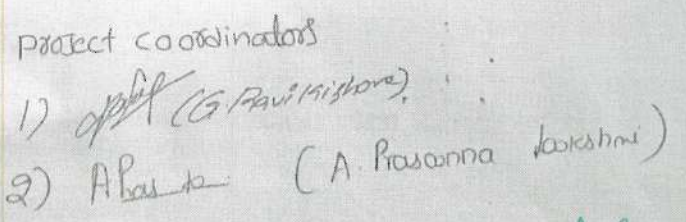 project coordinators
1) (G Ravi Kishore)
2) (A. Prasanna Laxkshmi)